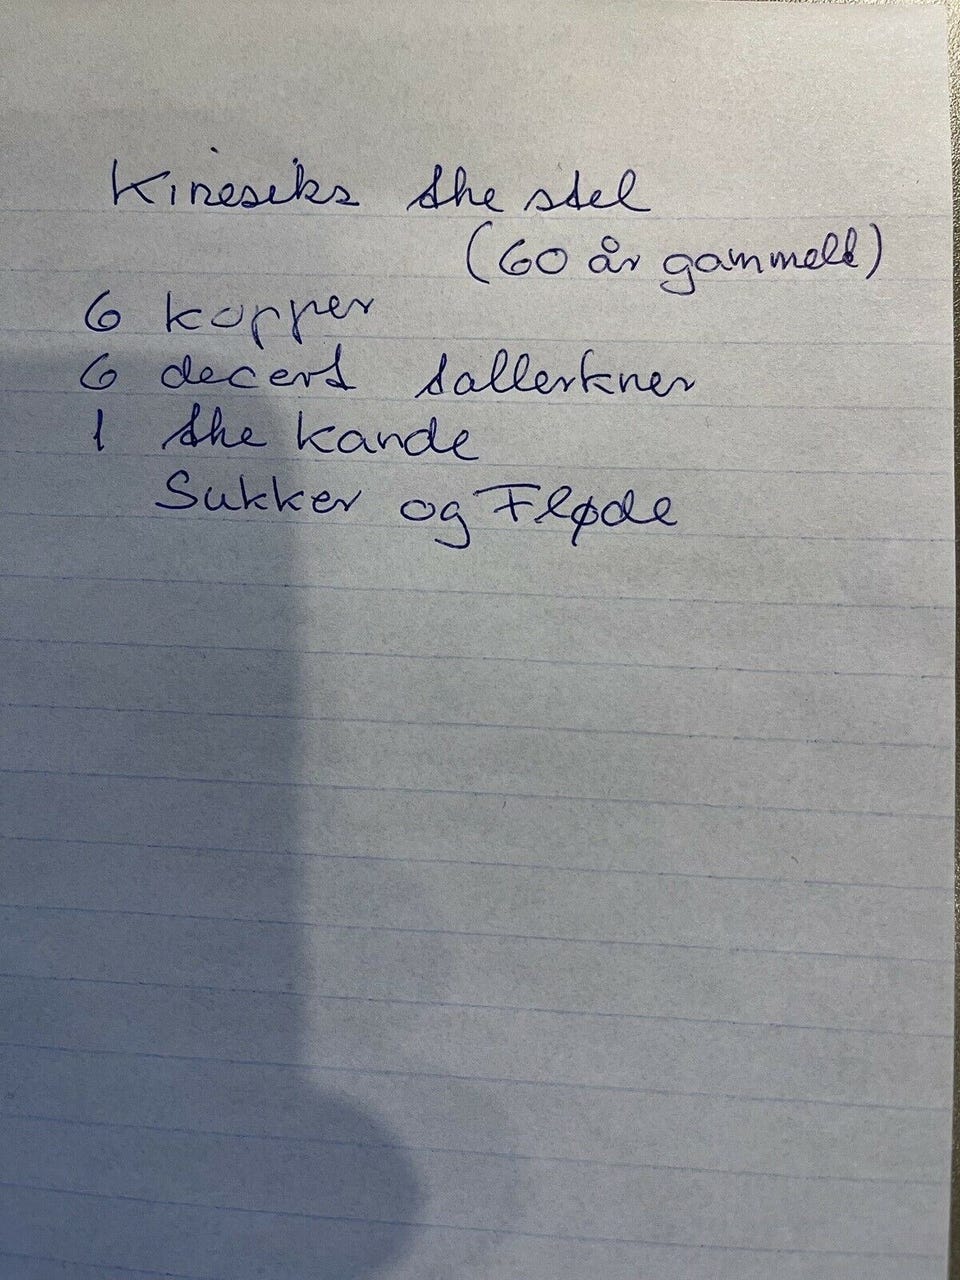 Kinesiks the stel
(60 år gammelt)
6 kopper
6 decert tallerkner
1 the kande
Sukker og Fløde